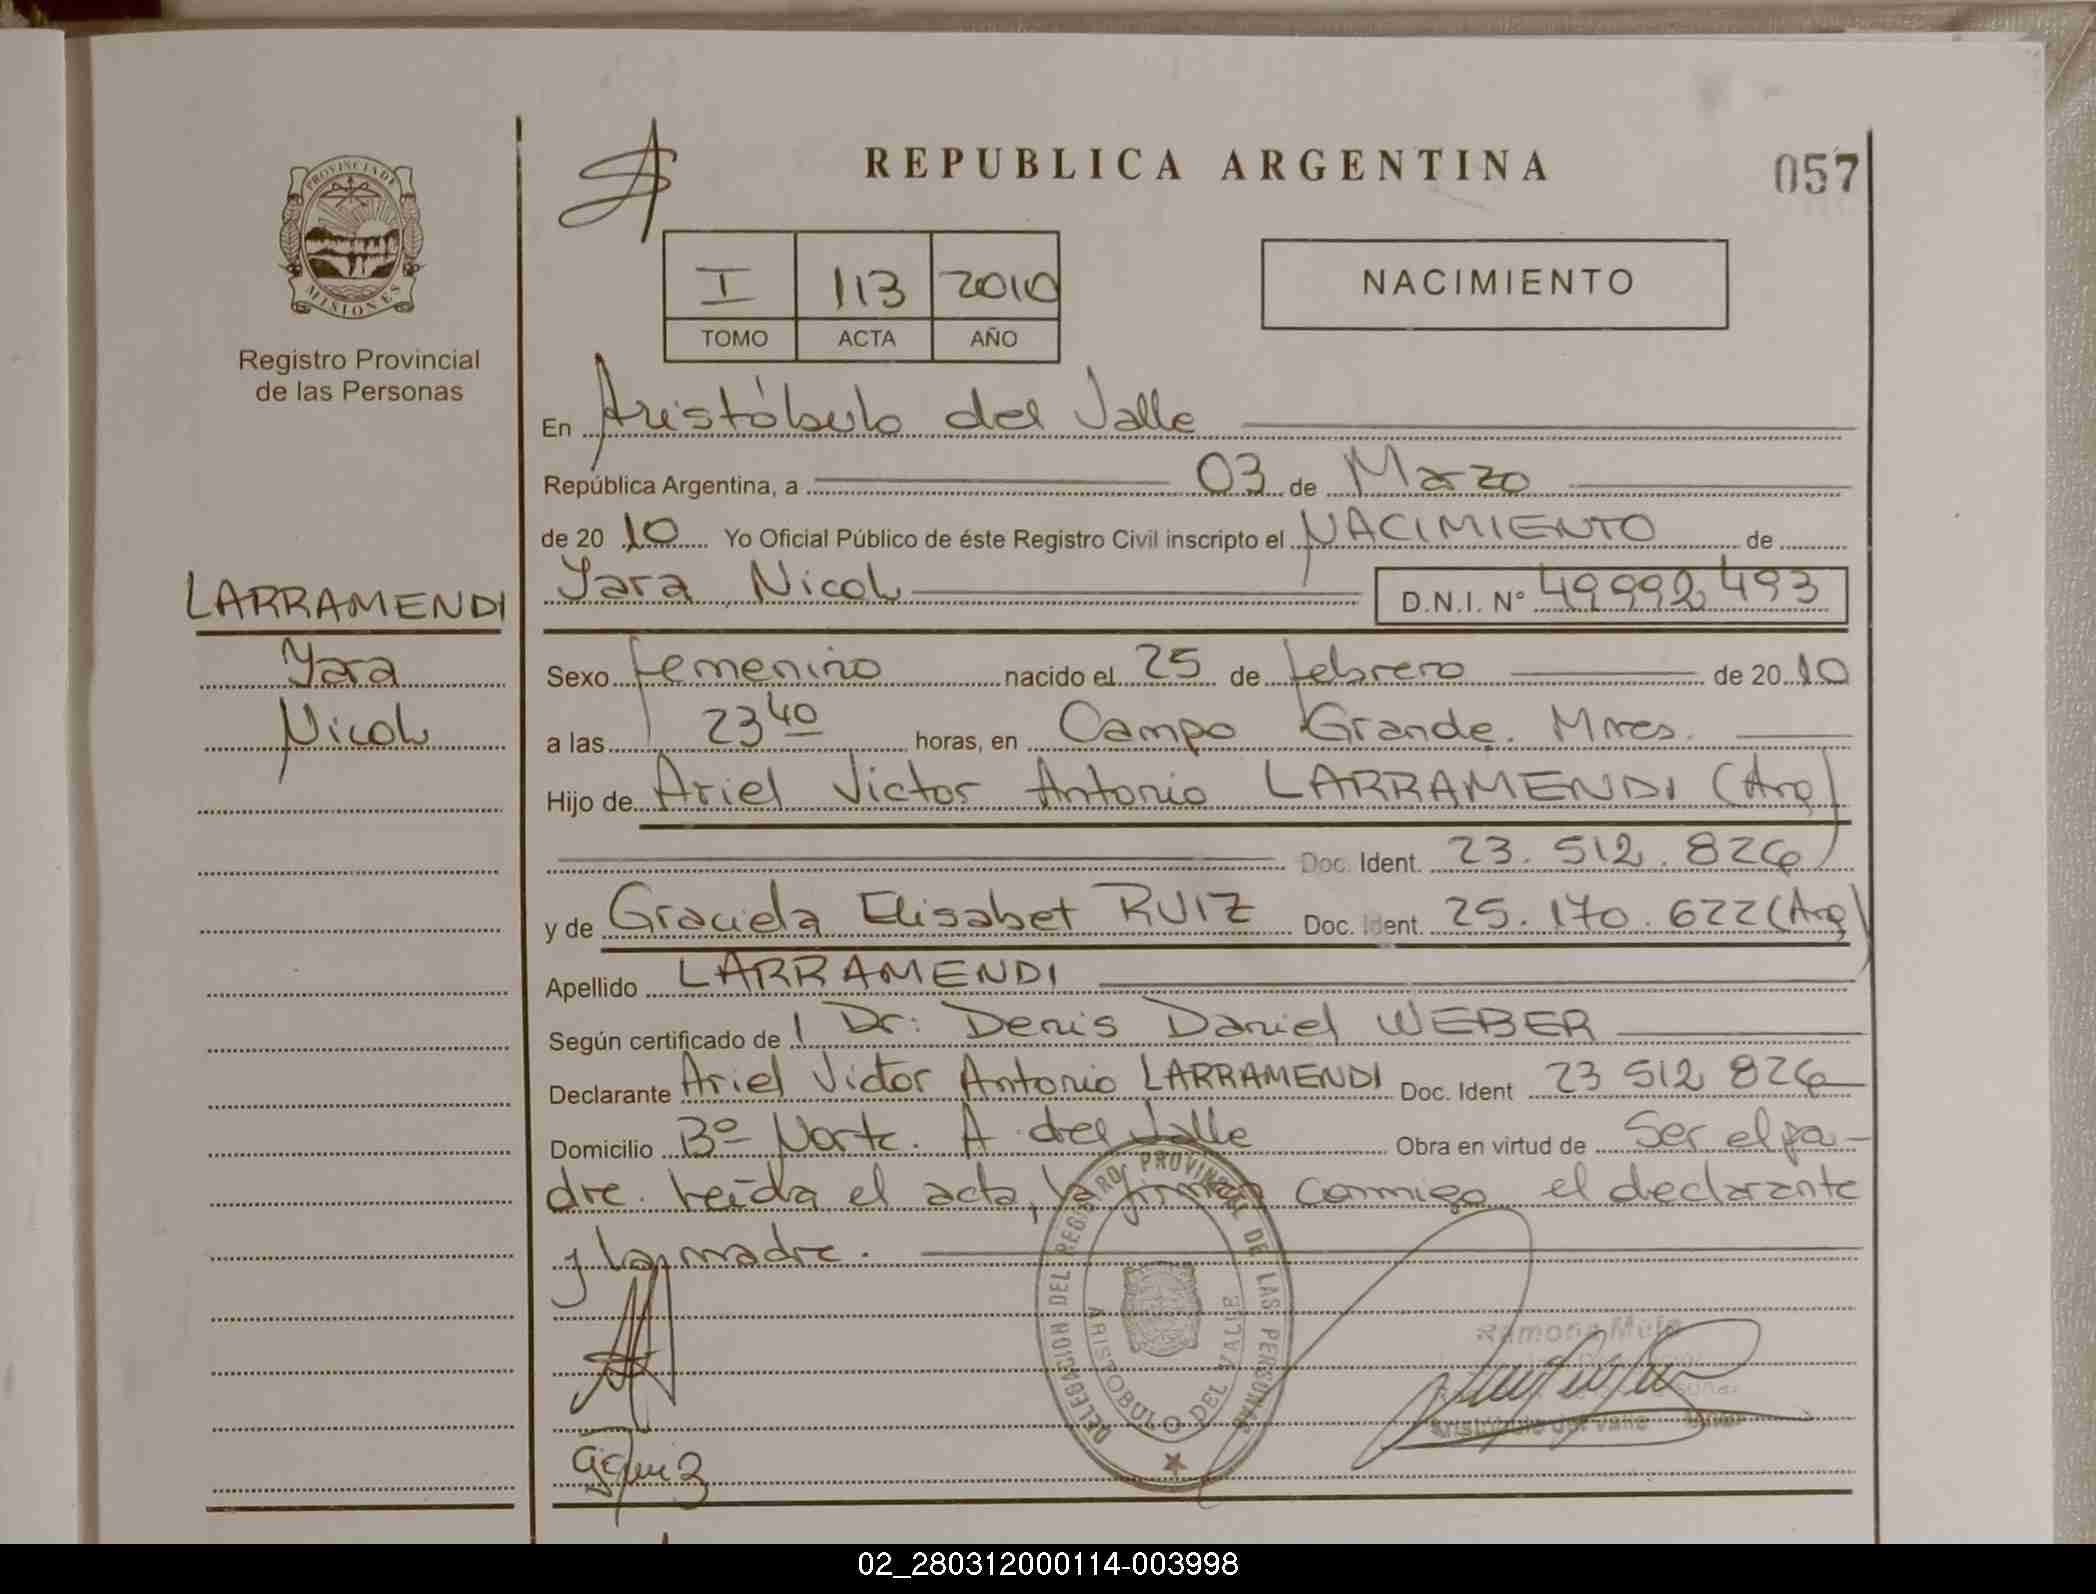 PROVINCIA DE
MISIONES
Registro Provincial
de las Personas
REPUBLICA ARGENTINA
057
I 113 2010
TOMO ACTA AÑO
NACIMIENTO
En Aristóbulo del Valle
República Argentina, a 03 de Marzo
de 2010 Yo Oficial Público de éste Registro Civil inscripto el NACIMIENTO de
Yara Nicol D.N.I. Nº 49992493
LARRAMENDI
Yara
Nicol
Sexo femenino nacido el 25 de febrero de 2010
a las 23 40 horas, en Campo Grande. Mnes.
Hijo de Ariel Victor Antonio LARRAMENDI (Arg)
Doc. Ident. 23.512.826
y de Graciela Elisabet RUIZ Doc. Ident. 25.170.622 (Arg)
Apellido LARRAMENDI
Según certificado de Dr: Denis Daniel WEBER
Declarante Ariel Victor Antonio LARRAMENDI Doc. Ident 23 512 826
Domicilio Bº Norte. A. del Valle Obra en virtud de Ser el pa-
dre. Leída el acta, la firman conmigo el declarante
y la madre.
DELEGACION DEL REGISTRO PROVINCIAL DE LAS PERSONAS
ARISTOBULO DEL VALLE
Ramona
Aristóbulo del Valle
02_280312000114-003998